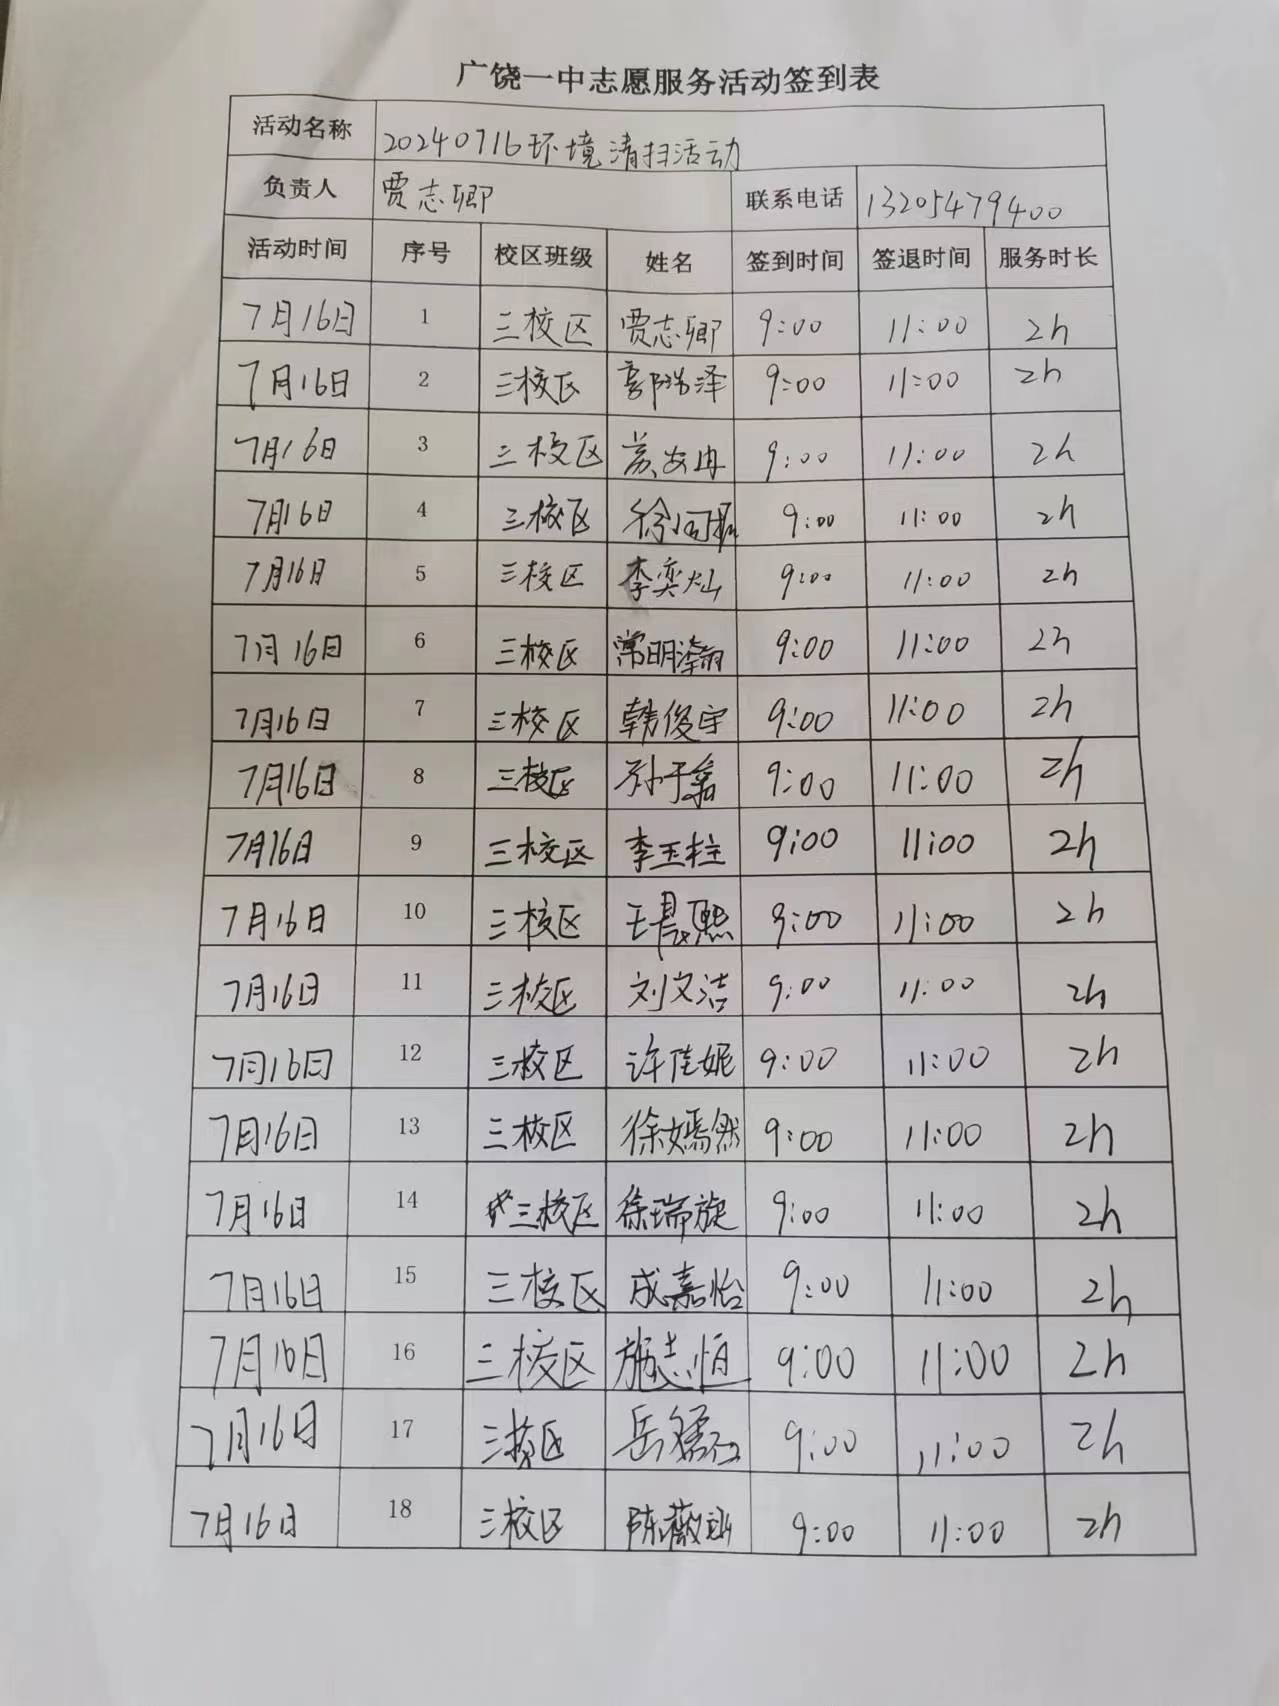 广饶一中志愿服务活动签到表
活动名称 20240716环境清扫活动
负责人 贾志卿 联系电话 13205479400
活动时间 序号 校区班级 姓名 签到时间 签退时间 服务时长
7月16日 1 三校区 贾志卿 9:00 11:00 2h
7月16日 2 三校区 9:00 11:00 2h
7月16日 3 三校区 9:00 11:00 2h
7月16日 4 三校区 9:00 11:00 2h
7月16日 5 三校区 李奕灿 9:00 11:00 2h
7月16日 6 三校区 常明瀚 9:00 11:00 2h
7月16日 7 三校区 韩俊宇 9:00 11:00 2h
7月16日 8 三校区 9:00 11:00 2h
7月16日 9 三校区 李玉柱 9:00 11:00 2h
7月16日 10 三校区 王晨熙 9:00 11:00 2h
7月16日 11 三校区 刘文洁 9:00 11:00 2h
7月16日 12 三校区 许佳妮 9:00 11:00 2h
7月16日 13 三校区 徐嫣然 9:00 11:00 2h
7月16日 14 三校区 徐瑞旋 9:00 11:00 2h
7月16日 15 三校区 成嘉怡 9:00 11:00 2h
7月16日 16 三校区 施志恒 9:00 11:00 2h
7月16日 17 三校区 9:00 11:00 2h
7月16日 18 三校区 9:00 11:00 2h